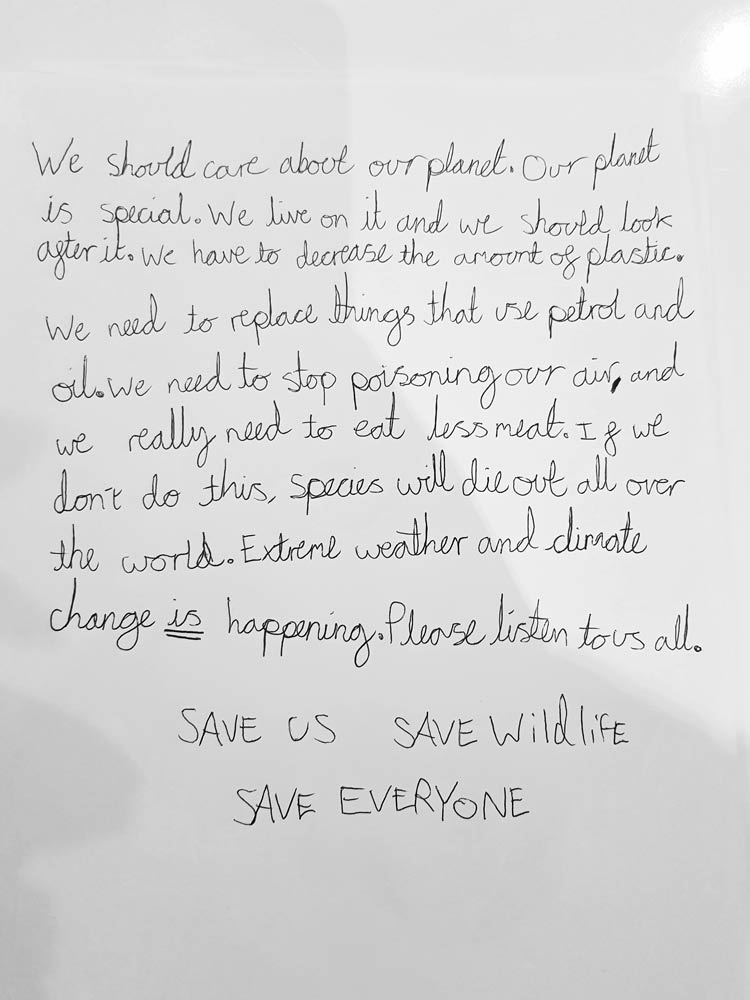 We should care about our planet. Our planet
is special. We live on it and we should look
after it. We have to decrease the amount of plastic.
We need to replace things that use petrol and
oil. We need to stop poisoning our air, and
we really need to eat less meat. If we
don't do this, species will die out all over
the world. Extreme weather and climate
change is happening. Please listen to us all.
SAVE US SAVE WildliFE
SAVE EVERYONE